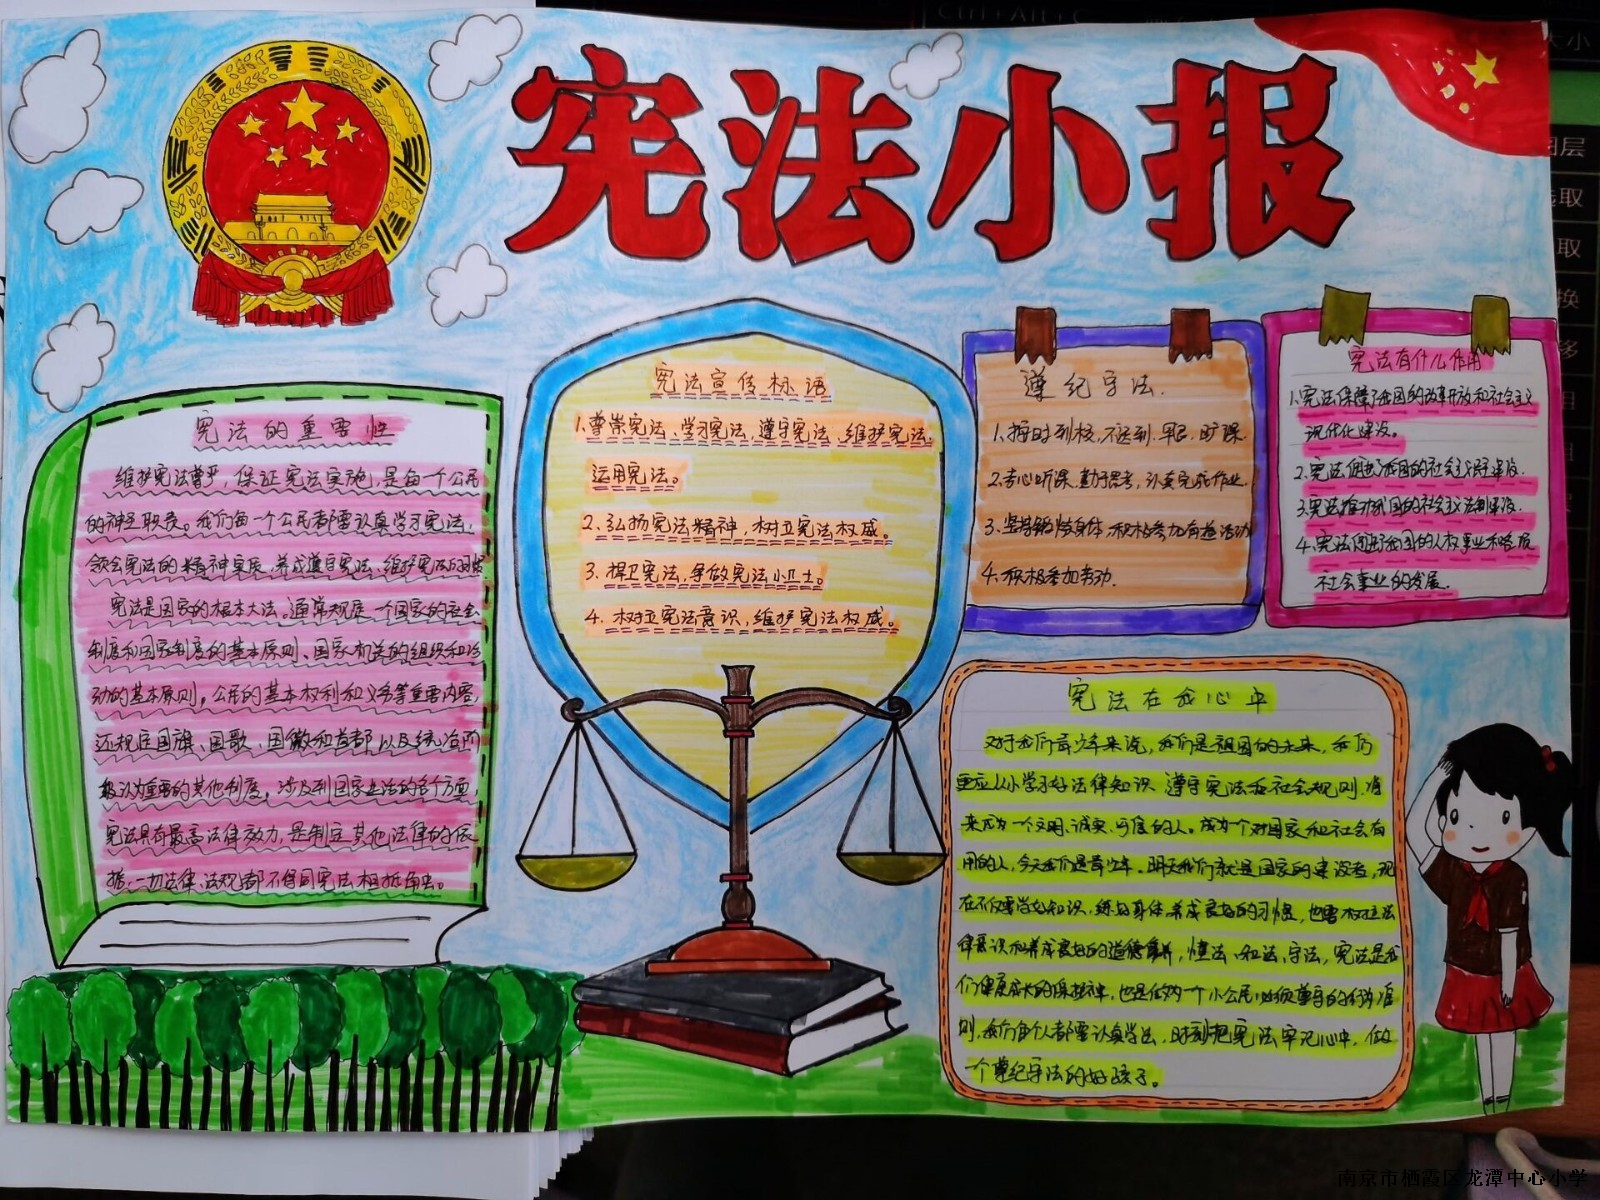 宪法小报
宪法的重要性
维护宪法尊严，保证宪法实施，是每一个公民
的神圣职责。我们每一个公民都要认真学习宪法，
领会宪法的精神实质，养成遵守宪法、维护宪法的
宪法是国家的根本大法。通常规定一个国家的社会
制度和国家制度的基本原则、国家机关的组织和活
动的基本原则，公民的基本权利和义务等重要内容，
还规定国旗、国歌、国徽和首都以及统治阶
级认为重要的其他制度，涉及到国家生活的各个方面，
宪法具有最高法律效力，是制定其他法律的依
据，一切法律、法规都不得同宪法相抵触。
宪法宣传标语
1.尊崇宪法，学习宪法，遵守宪法，维护宪法，
运用宪法。
2.弘扬宪法精神，树立宪法权威。
3.捍卫宪法，争做宪法小卫士。
4.树立宪法意识，维护宪法权威。
遵纪守法.
1.按时到校，不迟到、早退、旷课.
2.专心听课.勤于思考，认真完成作业.
3.坚持锻炼身体，积极参加有益活动
4.积极参加劳动.
宪法有什么作用
1.宪法保障了我国的改革开放和社会主义
现代化建设。
2.宪法促进了我国的社会主义民主建设.
3.宪法推动我国的社会主义法制建设.
4.宪法促进了我国的人权事业和各项
社会事业的发展.
宪法在我心中
对于我们青少年来说，我们是祖国的未来，我们
更应从小学习好法律知识.遵守宪法和社会规则.将
来成为一个文明、诚实、守信的人。成为一个对国家和社会有
用的人，今天我们是青少年.明天我们就是国家的建设者，现
在不仅要学好知识，练好身体，养成良好的习惯，也要树立法
律意识和养成良好的道德素养，懂法、知法、守法，宪法是我
们健康成长的保护神，也是任何一个小公民必须遵守的行为准
则，我们每个人都要认真学法，时刻把宪法牢记心中，做
一个遵纪守法的好孩子。
南京市栖霞区龙潭中心小学